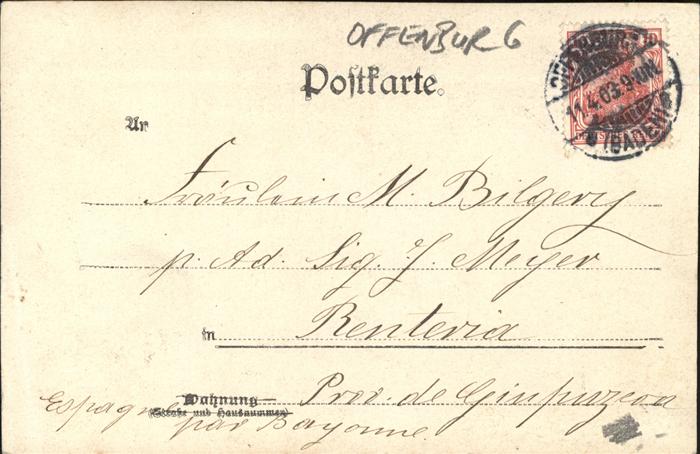 OFFENBURG
Postkarte.
An
Fräulein M. Bilgery
p. Ad. Sig. J. Meyer
in Renteria
Wohnung
(Straße und Hausnummer)
Prov. de Guipuzcoa
Espagne
par Bayonne
OFFENBURG
11.4.03.9-10N.
(BADEN)
10